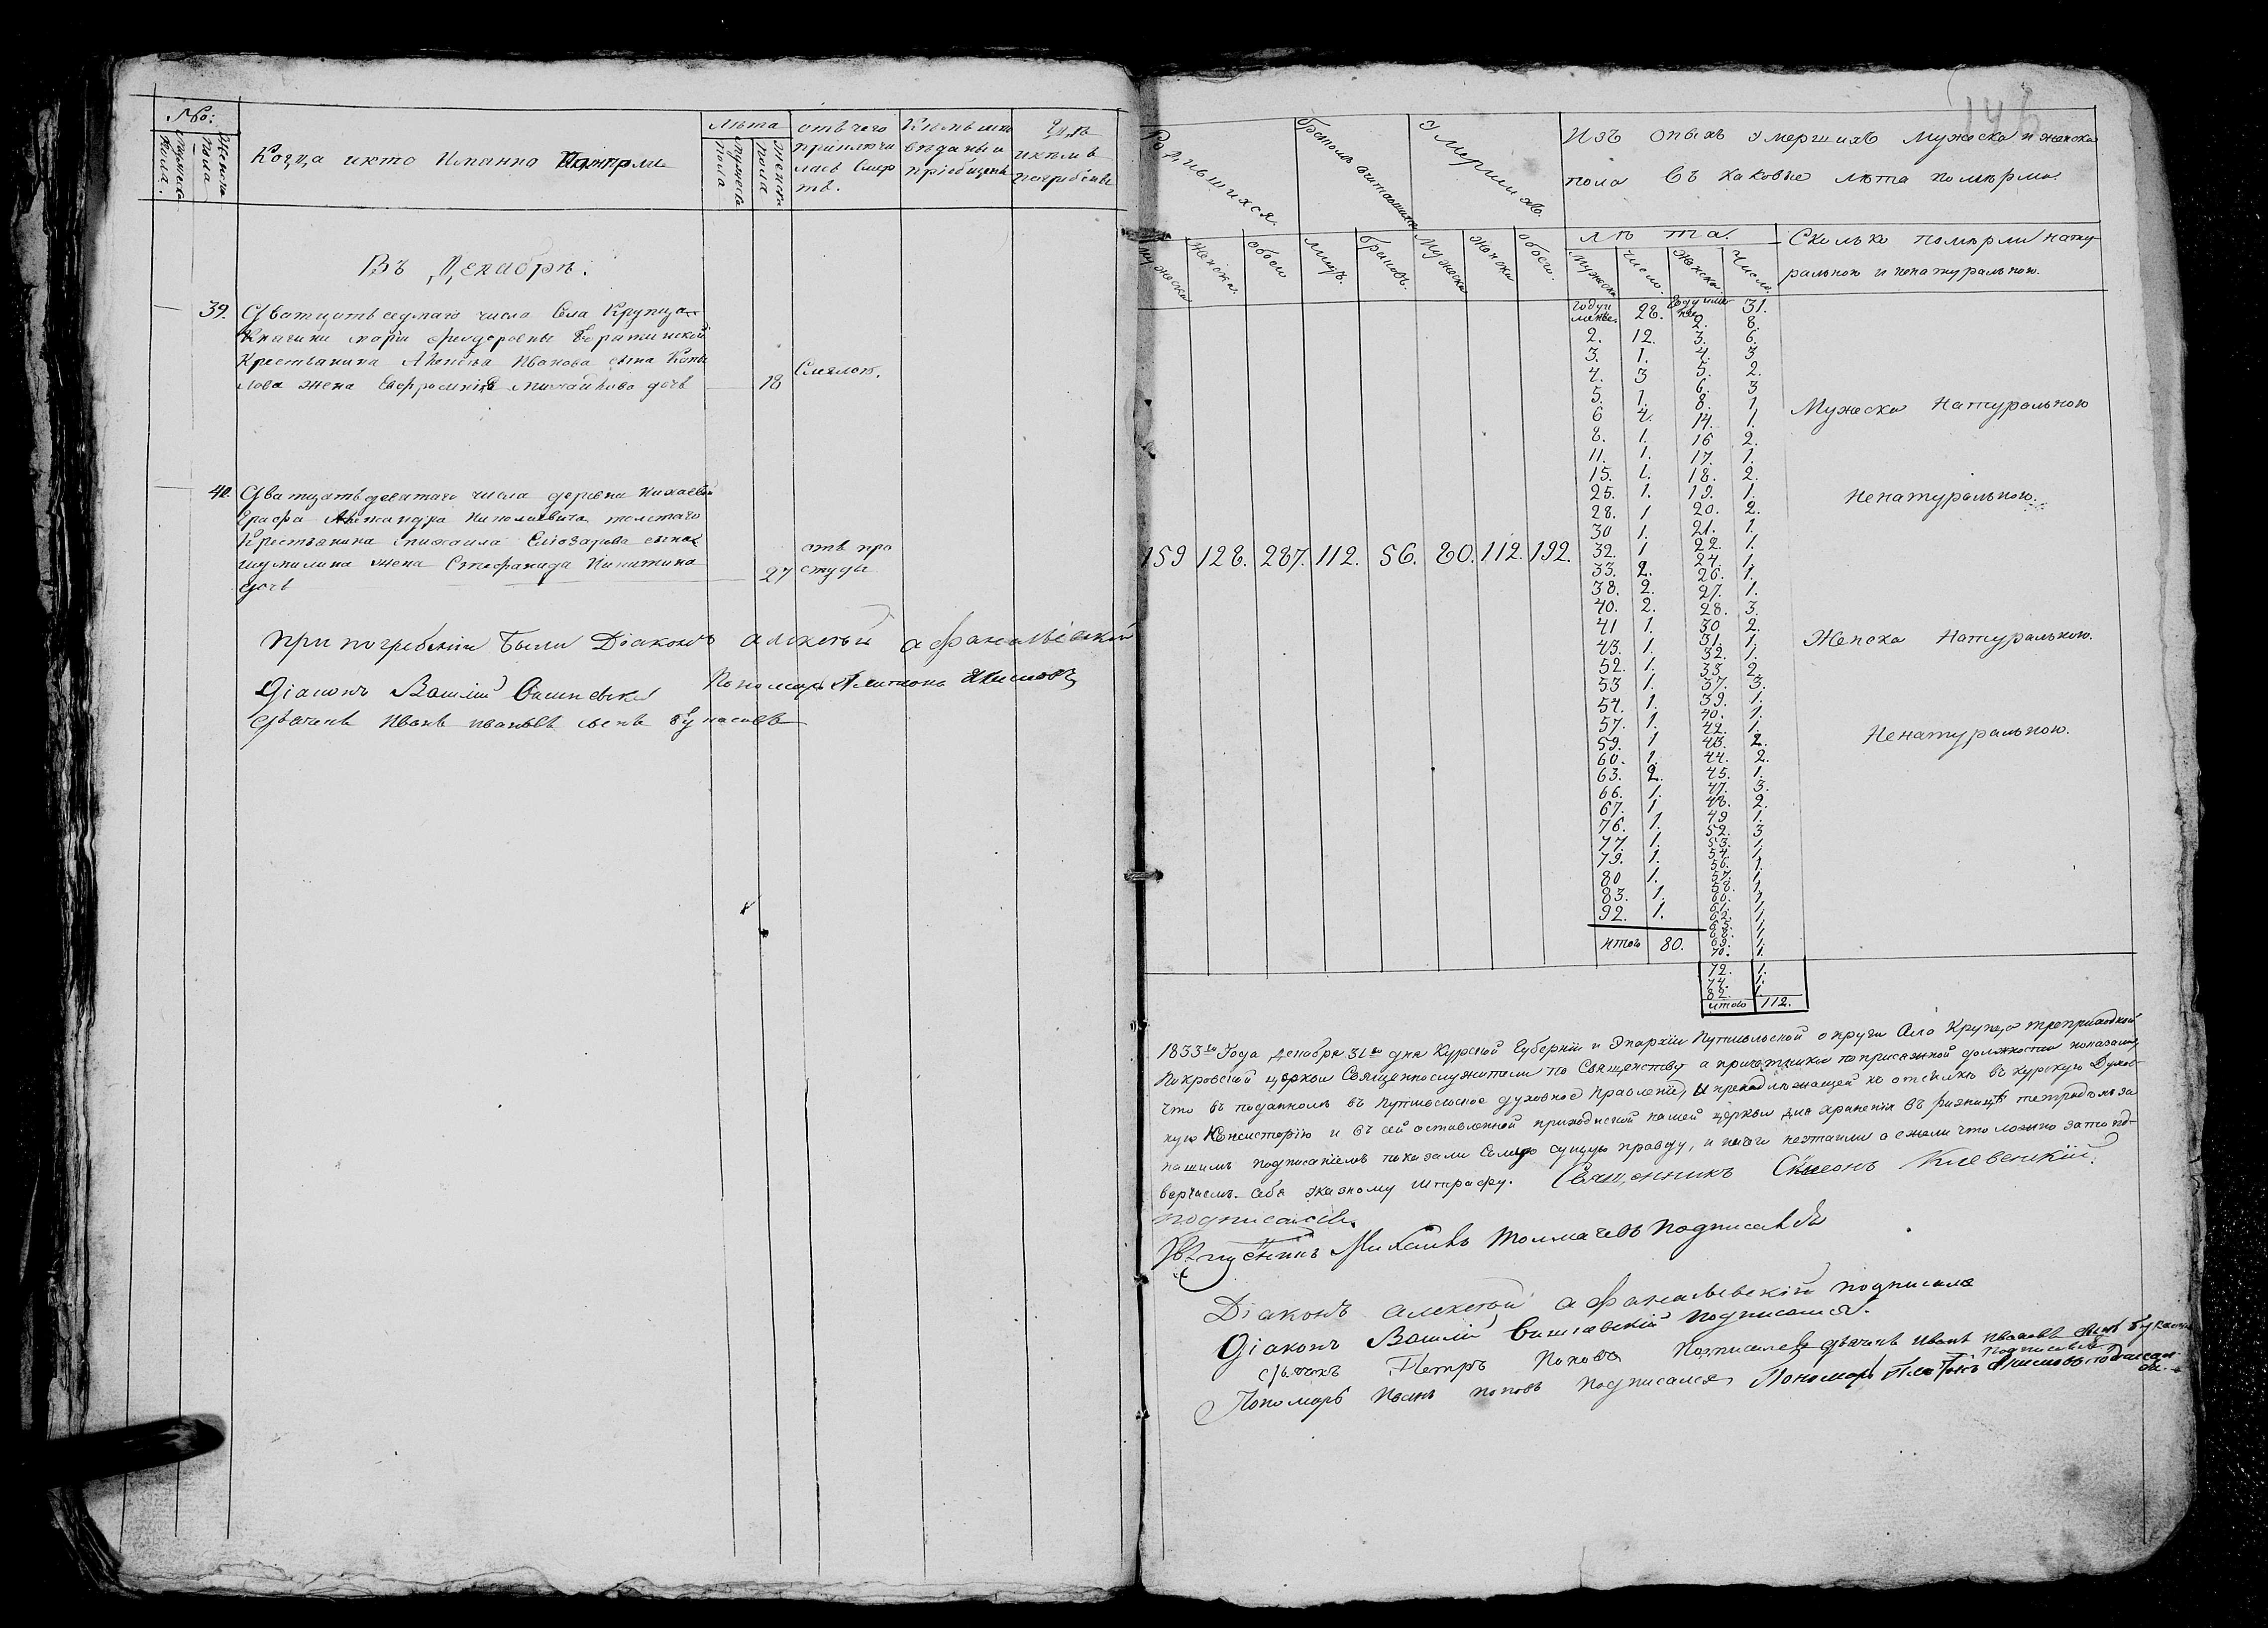 №:
Мужеска
пола.
Женска
пола
Когда и кто имянно померли
Лѣта
Мужеска
пола
Женска
пола
отъ чего
приключи
лась смер
ть.
Кѣмъ
и
пріобщены
Гдѣ
и кѣмъ
погребены
Въ Декабрѣ.
39. Дватцать седмаго числа Села Крупца
Княгини маріи Феодоровны Борятинской
Крестьянина Иванова сына
лова жена Евфросиніа Михайлова дочь
18
40. Дватцать девятаго числа деревни
Графа Александра Николаевича толстаго
Крестьянина михаила сына
жена Стефанида Никитина
дочь
27
отъ про
студы
при погребеніи были Діаконъ алексѣй афанасьевскій
Діаконъ Василій Вишневскій Пономарь Платонъ Акимовъ
дьячекъ Иванъ ивановъ сынъ
146
Родившихся.
Бракомъ сочтавшихся
Умершихъ.
Изъ оныхъ умершихъ мужеска и женска
пола въ каковые лѣта померли.
Мужеска
Женска.
обоего
Браковъ.
Мужеска
Женска
обоего.
лѣта.
Мужеска
Число.
Женска.
Число.
Сколько померли нату
ральною и ненатуральною.
159 128. 287. 112. 56. 80. 112. 192.
28. 31.
2. 12. 2. 8.
3. 1. 3. 6.
4. 3 4. 3
5. 1. 5. 2.
6 4. 6. 3
8. 1. 8. 1
11. 1. 14. 1.
15. 1. 16 2.
25. 1. 17. 1.
28. 1 18. 2.
30 1. 19. 1.
32. 1 20. 2.
33. 2. 21. 1.
38. 2. 22. 1.
40. 2. 24. 1.
41 1. 26. 1.
43. 1. 27. 1.
52. 1. 28. 3.
53 1. 30 2.
54. 1. 31. 1.
57. 1. 32. 1.
59. 1 33. 2
60. 1. 37. 3.
63. 2. 39. 1.
66. 1. 40. 1.
67. 1. 42. 1.
76. 1. 43. 2.
77. 1. 44. 2.
79. 1. 45. 1.
80 1. 47. 3.
83. 1. 48. 2.
92. 1. 49 1.
итого 80.
52. 3
53. 1.
54. 1.
56. 1.
57. 1.
58. 1.
60. 1.
61. 1.
62. 1.
65. 1.
68. 1.
69. 1.
70. 1.
72. 1.
74. 1.
82. 1.
итого 112.
Мужеска Натуральною
Ненатуральною.
Женска Натуральною.
Ненатуральною.
1833го Года Декабря 31го дня Курской Губерніи и Епархіи Путивльской округи Села Крупца треприходной
Покровской церкви Священнослужители по Священству а причетники по присяжной должности показали,
что въ поданномъ въ Путивльское духовное Правленіе, и принадлежащей къ отсылкѣ въ Курскую Духов-
ную Консисторію и въ сей оставленной приходской нашей церкви для храненія въ ризницѣ тетрадямъ за
нашимъ подписаніемъ показали самую сущую правду, и ничего неутаили а ежели что ложно за то под-
вергаемъ себя указному штрафу. Священникъ Симеонъ Клевенскій
подписался.
Священникъ Михаилъ Толмачевъ подписался
Діаконъ алексѣй афанасьевскій подписался
Діаконъ Василій Вишневскій подписался.
дьячекъ Петръ Поповъ подписался дьячекъ Иванъ Ивановъ сынъ
подписался
Пономарь Иванъ поповъ подписался Пономарь Платонъ Акимовъ подписал
ся.